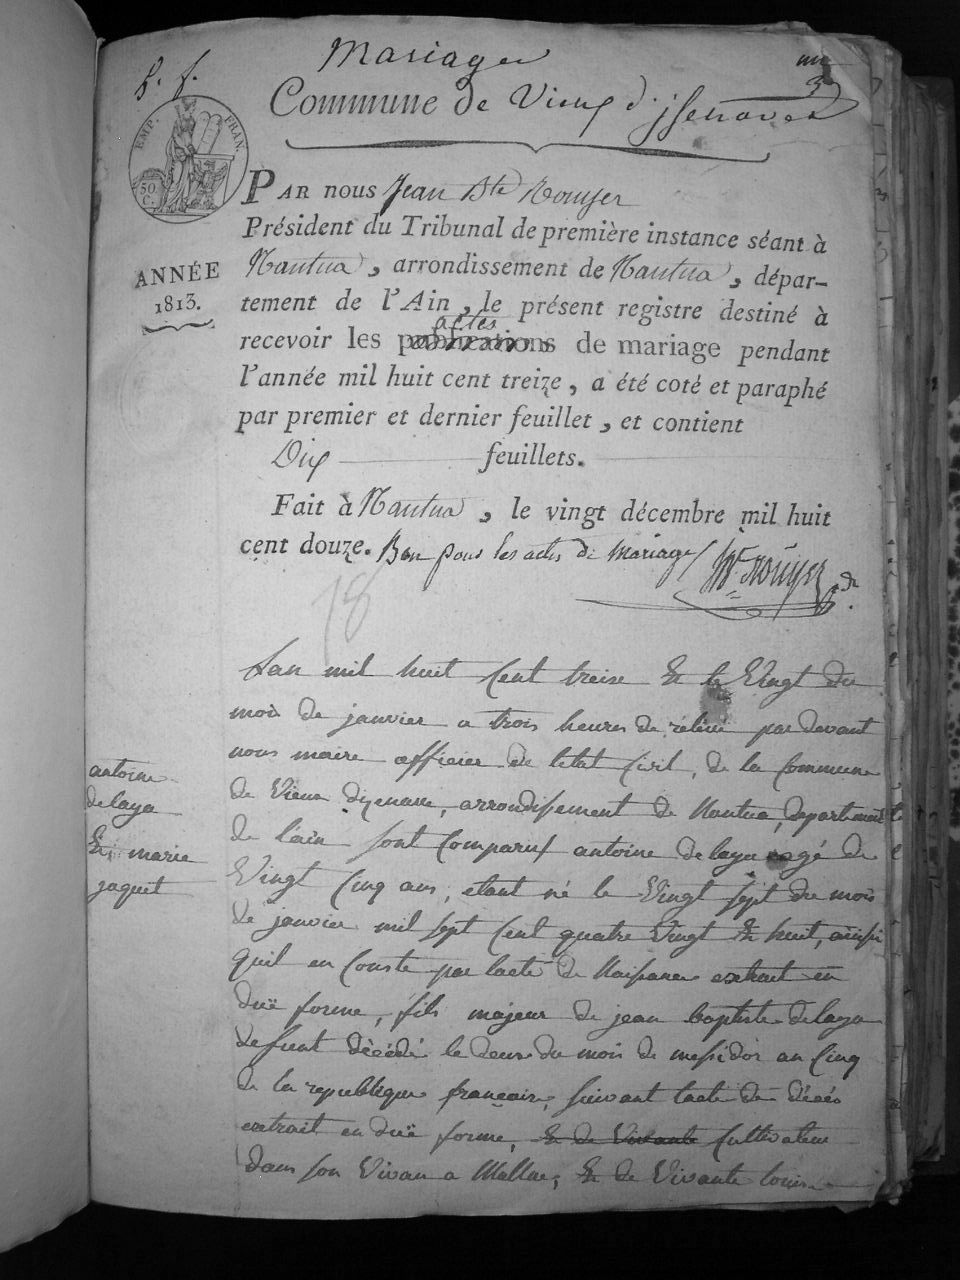 Mariages
Commune de Vieux d'jsenaves
EMP. FRAN.
50. C.
ANNÉE
1813.
PAR NOUS Jean Bte Rouyer
Président du Tribunal de première instance séant à
Nantua, arrondissement de Nantua, dépar-
tement de l'Ain, le présent registre destiné à
actes
recevoir les publications de mariage pendant
l'année mil huit cent treize, a été coté et paraphé
par premier et dernier feuillet, et contient
Dix feuillets.
Fait à Nantua, le vingt décembre mil huit
cent douze. Bon pour les actes de Mariages
Rouyer
18
Lan mil huit Cent treise Et le Vingt du
mois de janvier a trois heures de relevé par devant
nous maire officier de letat Civil, de la Commune
de Vieux dizenave, arrondissement de Nantua, departement
de l'ain sont Comparus antoine delaya agé de
Vingt Cinq ans, etant né le Vingt sept du mois
de janvier mil sept Cent quatre Vingt Et huit, ainsi
quil en Conste par lacte de Naissance extrait en
duë forme, fils majeur de jean baptiste delaya
defunt décédé le deux du mois de messidor an Cinq
de la republique française, suivant lacte de décés
extrait en duë forme, Et de Vivante Cultivateur
dans son Vivan a Maillac, Et de Vivante louise
antoine
delaya
Et marie
jaquet